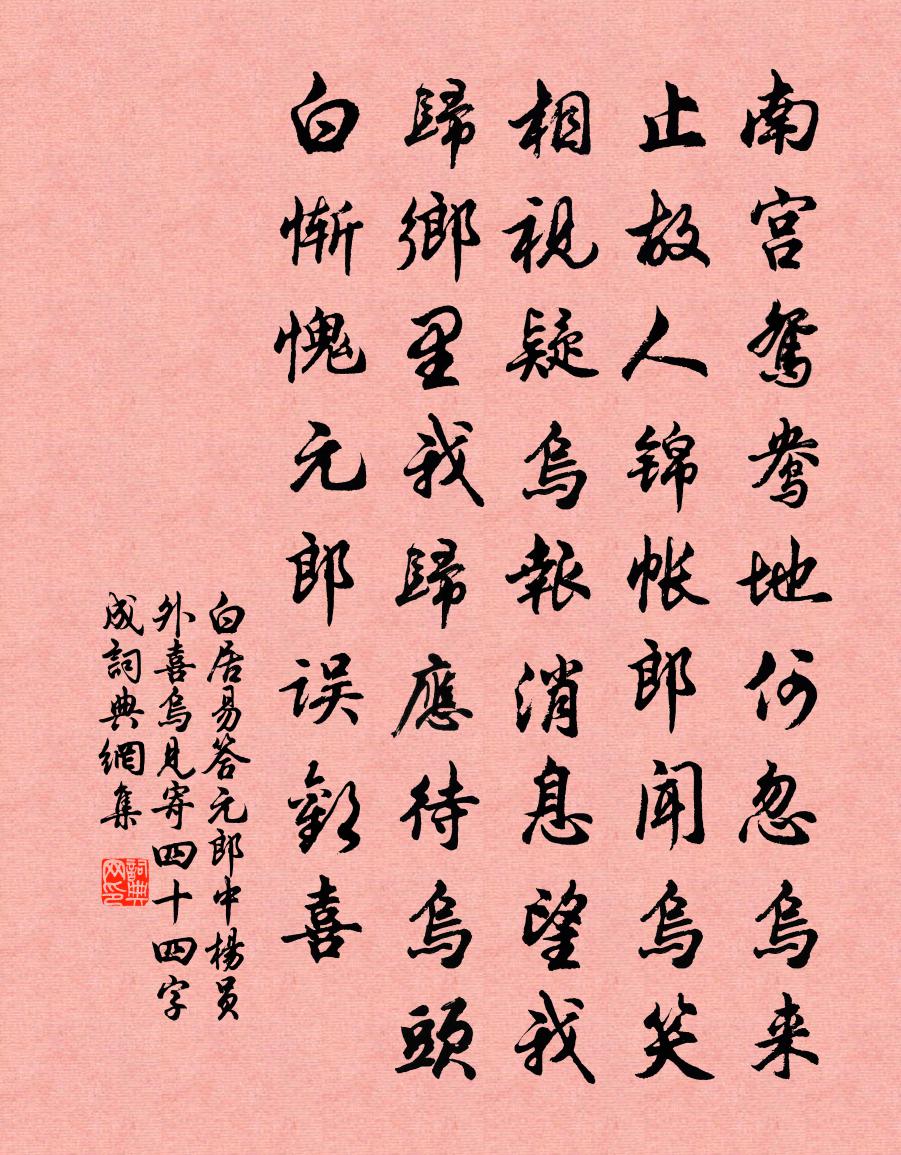 南宮鴛鴦地何忽烏來
止故人錦帳郎聞烏笑
相視疑烏報消息望我
歸鄉里我歸應待烏頭
白慚愧元郎誤歡喜
白居易答元郎中楊員
外喜烏見寄四十四字
成詞典網集
詞典
网印